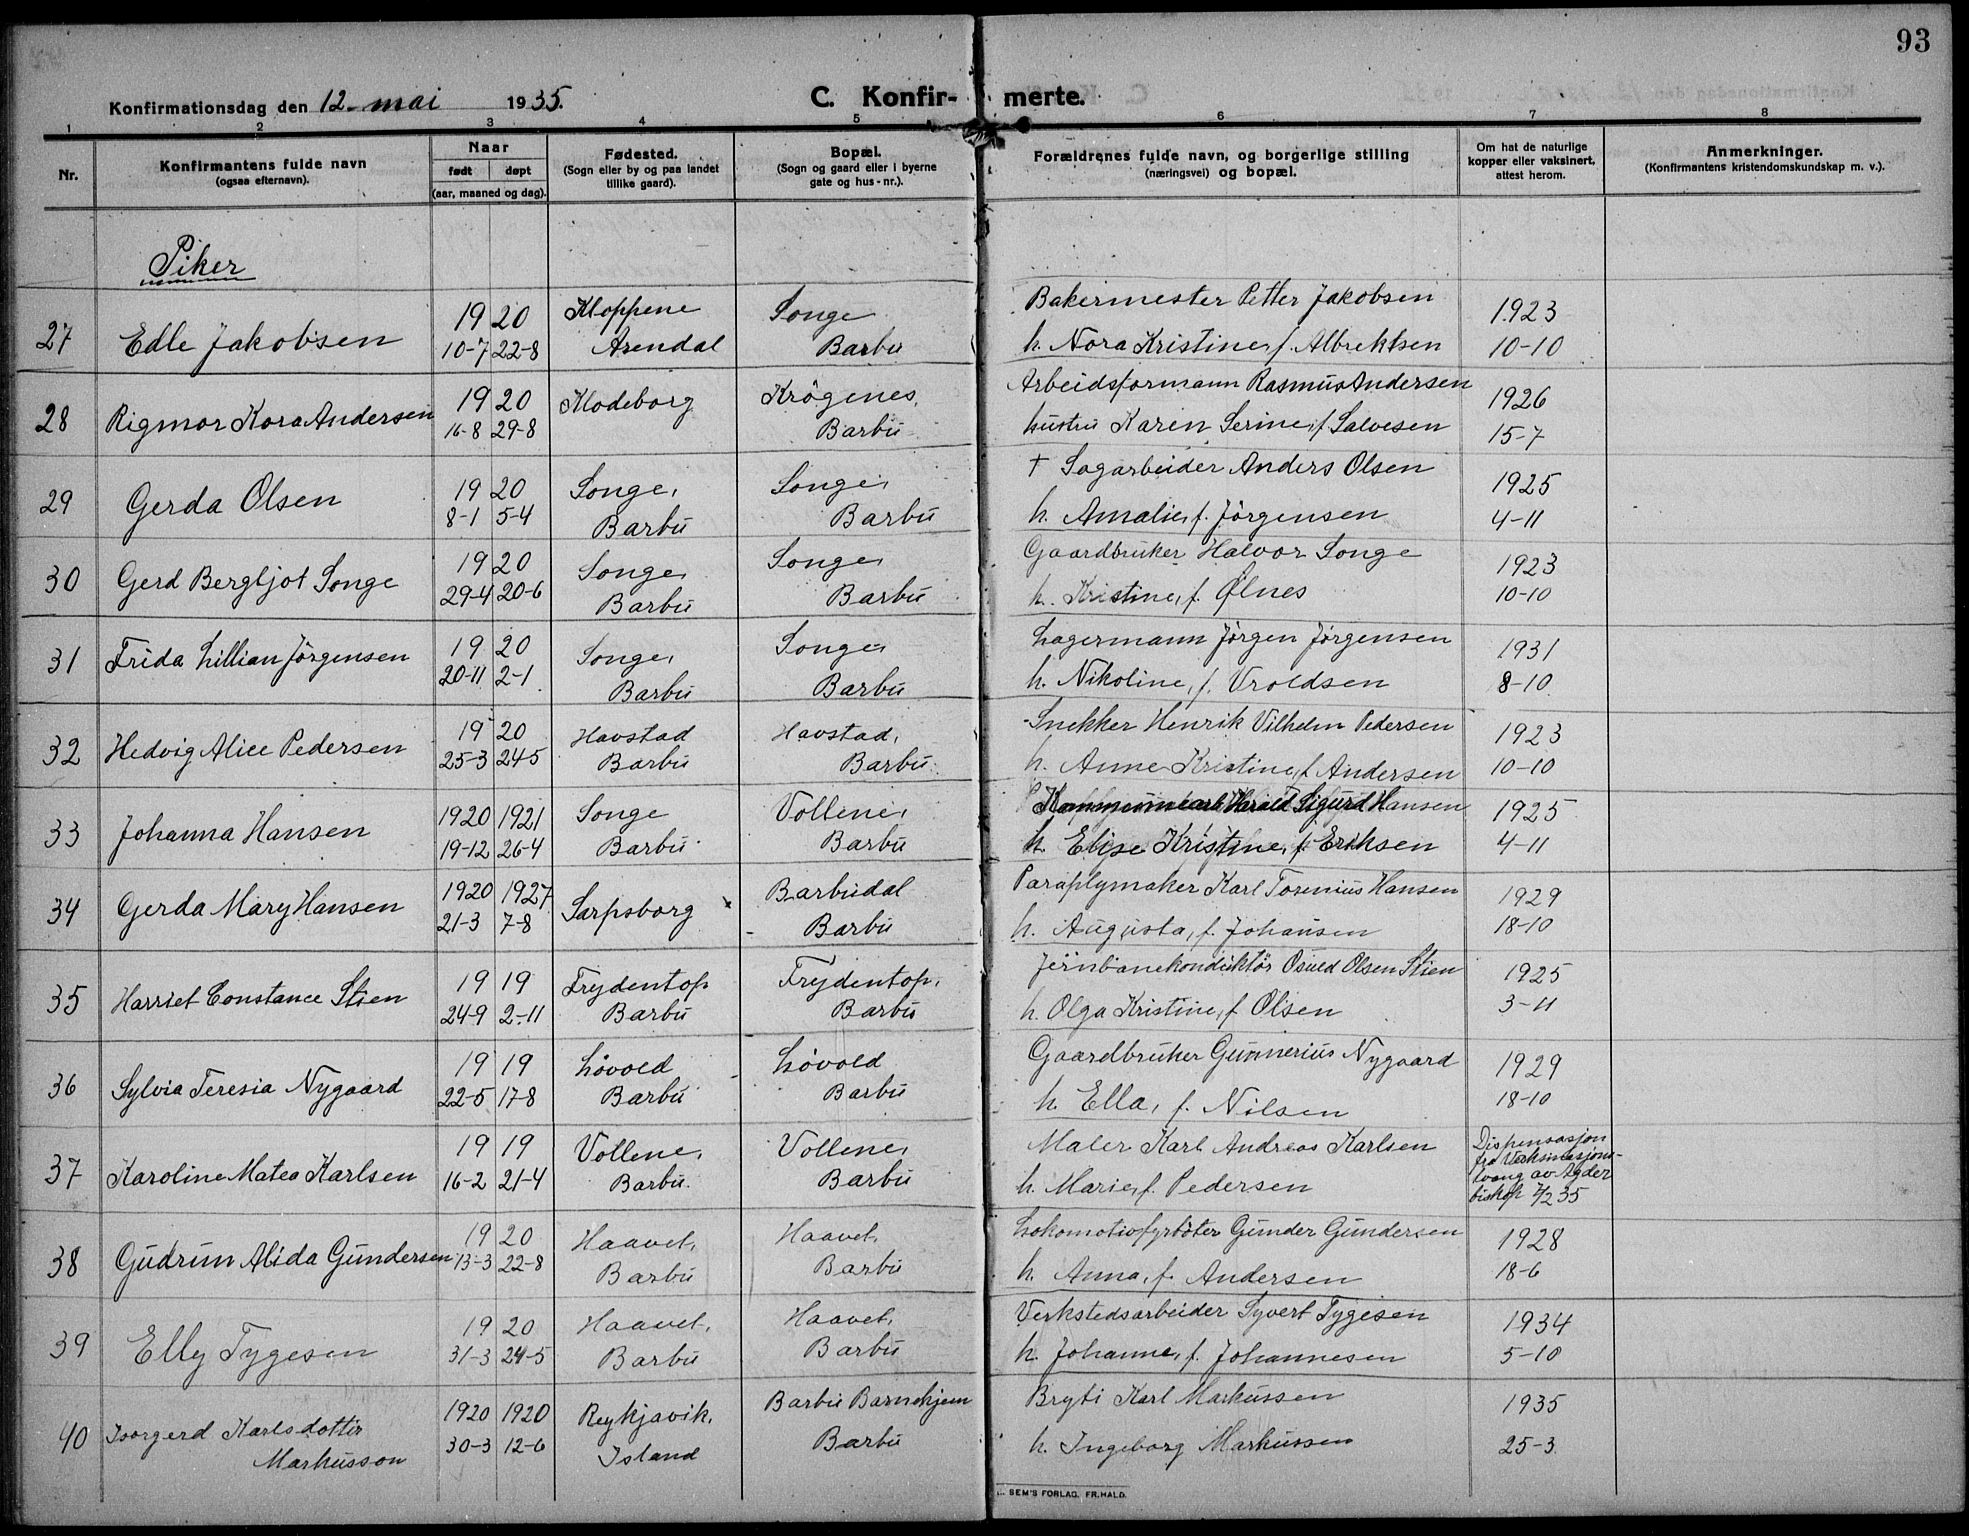 93
Konfirmationsdag den 12. mai 1935.
C. Konfirmerte.
1 2 3 4 5 6 7 8
Nr.
Konfirmantens fulde navn
(ogsaa efternavn).
Naar
født døpt
(aar, maaned og dag).
Fødested.
(Sogn eller by og paa landet
tillike gaard).
Bopæl.
(Sogn og gaard eller i byerne
gate og hus-nr.).
Forældrenes fulde navn, og borgerlige stilling
(næringsvei) og bopæl.
Om hat de naturlige
kopper eller vaksinert,
attest herom.
Anmerkninger.
(Konfirmantens kristendomskundskap m. v.).
Piker
19 20 Kloppene Songe Bakermester Petter Jakobsen 1923
27 Edle Jakobsen 10-7 22-8 Arendal Barbu h. Nora Kristine, f. Albrektsen 10-10
19 20 Klodeborg Krögenes, Arbeidsformann Rasmus Andersen 1926
28 Rigmor Kora Andersen 16-8 29-8 Barbu hustru Karen Serine, f. Salvesen 15-7
19 20 Songe, Songe, † Sagarbeider Anders Olsen 1925
29 Gerda Olsen 8-1 5-4 Barbu Barbu h. Amalie, f. Jörgensen 4-11
19 20 Songe, Songe, Gaardbruker Halvor Songe 1923
30 Gerd Bergljot Songe 29-4 20-6 Barbu Barbu h. Kristine, f. Ølnes 10-10
19 20 Songe, Songe, Lagermann Jörgen Jörgensen 1931
31 Frida Lillian Jörgensen 20-11 2-1 Barbu Barbu h. Nikoline, f. Vroldsen 8-10
19 20 Havstad Havstad, Snekker Henrik Vilhelm Pedersen 1923
32 Hedvig Alice Pedersen 25-3 24-5 Barbu Barbu h. Anne Kristine, f. Andersen 10-10
1920 1921 Songe Vollene, Harald Sigurd Hansen 1925
33 Johanna Hansen 19-12 26-4 Barbu Barbu h. Elise Kristine, f. Eriksen 4-11
1920 1927 Sarpsborg Barbudal Paraplymaker Karl Torenius Hansen 1929
34 Gerda Mary Hansen 21-3 7-8 Barbu h. Augusta, f. Johansen 18-10
19 19 Frydentop Frydentop, Jernbanekonduktör Osvld Olsen Stien 1925
35 Harriet Constance Stien 24-9 2-11 Barbu Barbu h. Olga Kristine, f. Olsen 3-11
19 19 Lövold Lövold Gaardbruker Gunnerius Nygaard 1929
36 Sylvia Teresia Nygaard 22-5 17-8 Barbu Barbu h. Ella, f. Nilsen 18-10
19 19 Vollene, Vollene, Maler Karl Andreas Karlsen Dispensasjon
fra Vaksinasjons-
37 Karoline Matea Karlsen 16-2 21-4 Barbu. Barbu h. Marie, f. Pedersen tvang av Agder
biskop 7/2 35
19 20 Haavet, Haavet, Lokomotivfyrböter Gunder Gundersen 1928
38 Gudrun Alida Gundersen 13-3 22-8 Barbu Barbu h. Anna, f. Andersen 18-6
19 20 Haavet, Haavet, Verkstedsarbeider Syvert Tygesen 1934
39 Elly Tygesen 31-3 24-5 Barbu Barbu h. Johanne, f. Johannesen 5-10
1920 1920 Reykjavik, Barbu Barnehjem Bryti Karl Markussen 1935
40 Isorgerd Karlsdottir 30-3 12-6 Island Barbu h. Ingeborg Markussen 25-3
Markusson
SEM'S FORLAG, FR.HALD.